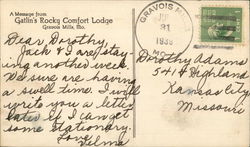 A Message from
Gatlin's Rocky Comfort Lodge
Gravois Mills, Mo.
Dear Dorothy,
Jack & I are stay-
ing another week.
We sure are having
a swell time. I will
write you a letter
later if I can get
some stationary.
Love
Velma
GRAVOIS
31
1938
MO.
Dorothy Adams
5414 Highland
Kansas City
Missouri